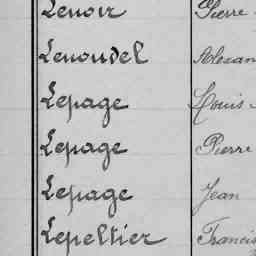 Lenoir Pierre
Lenoudel Alexan
Lepage Louis
Lepage Pierre
Lepage Jean
Lepeltier Francis